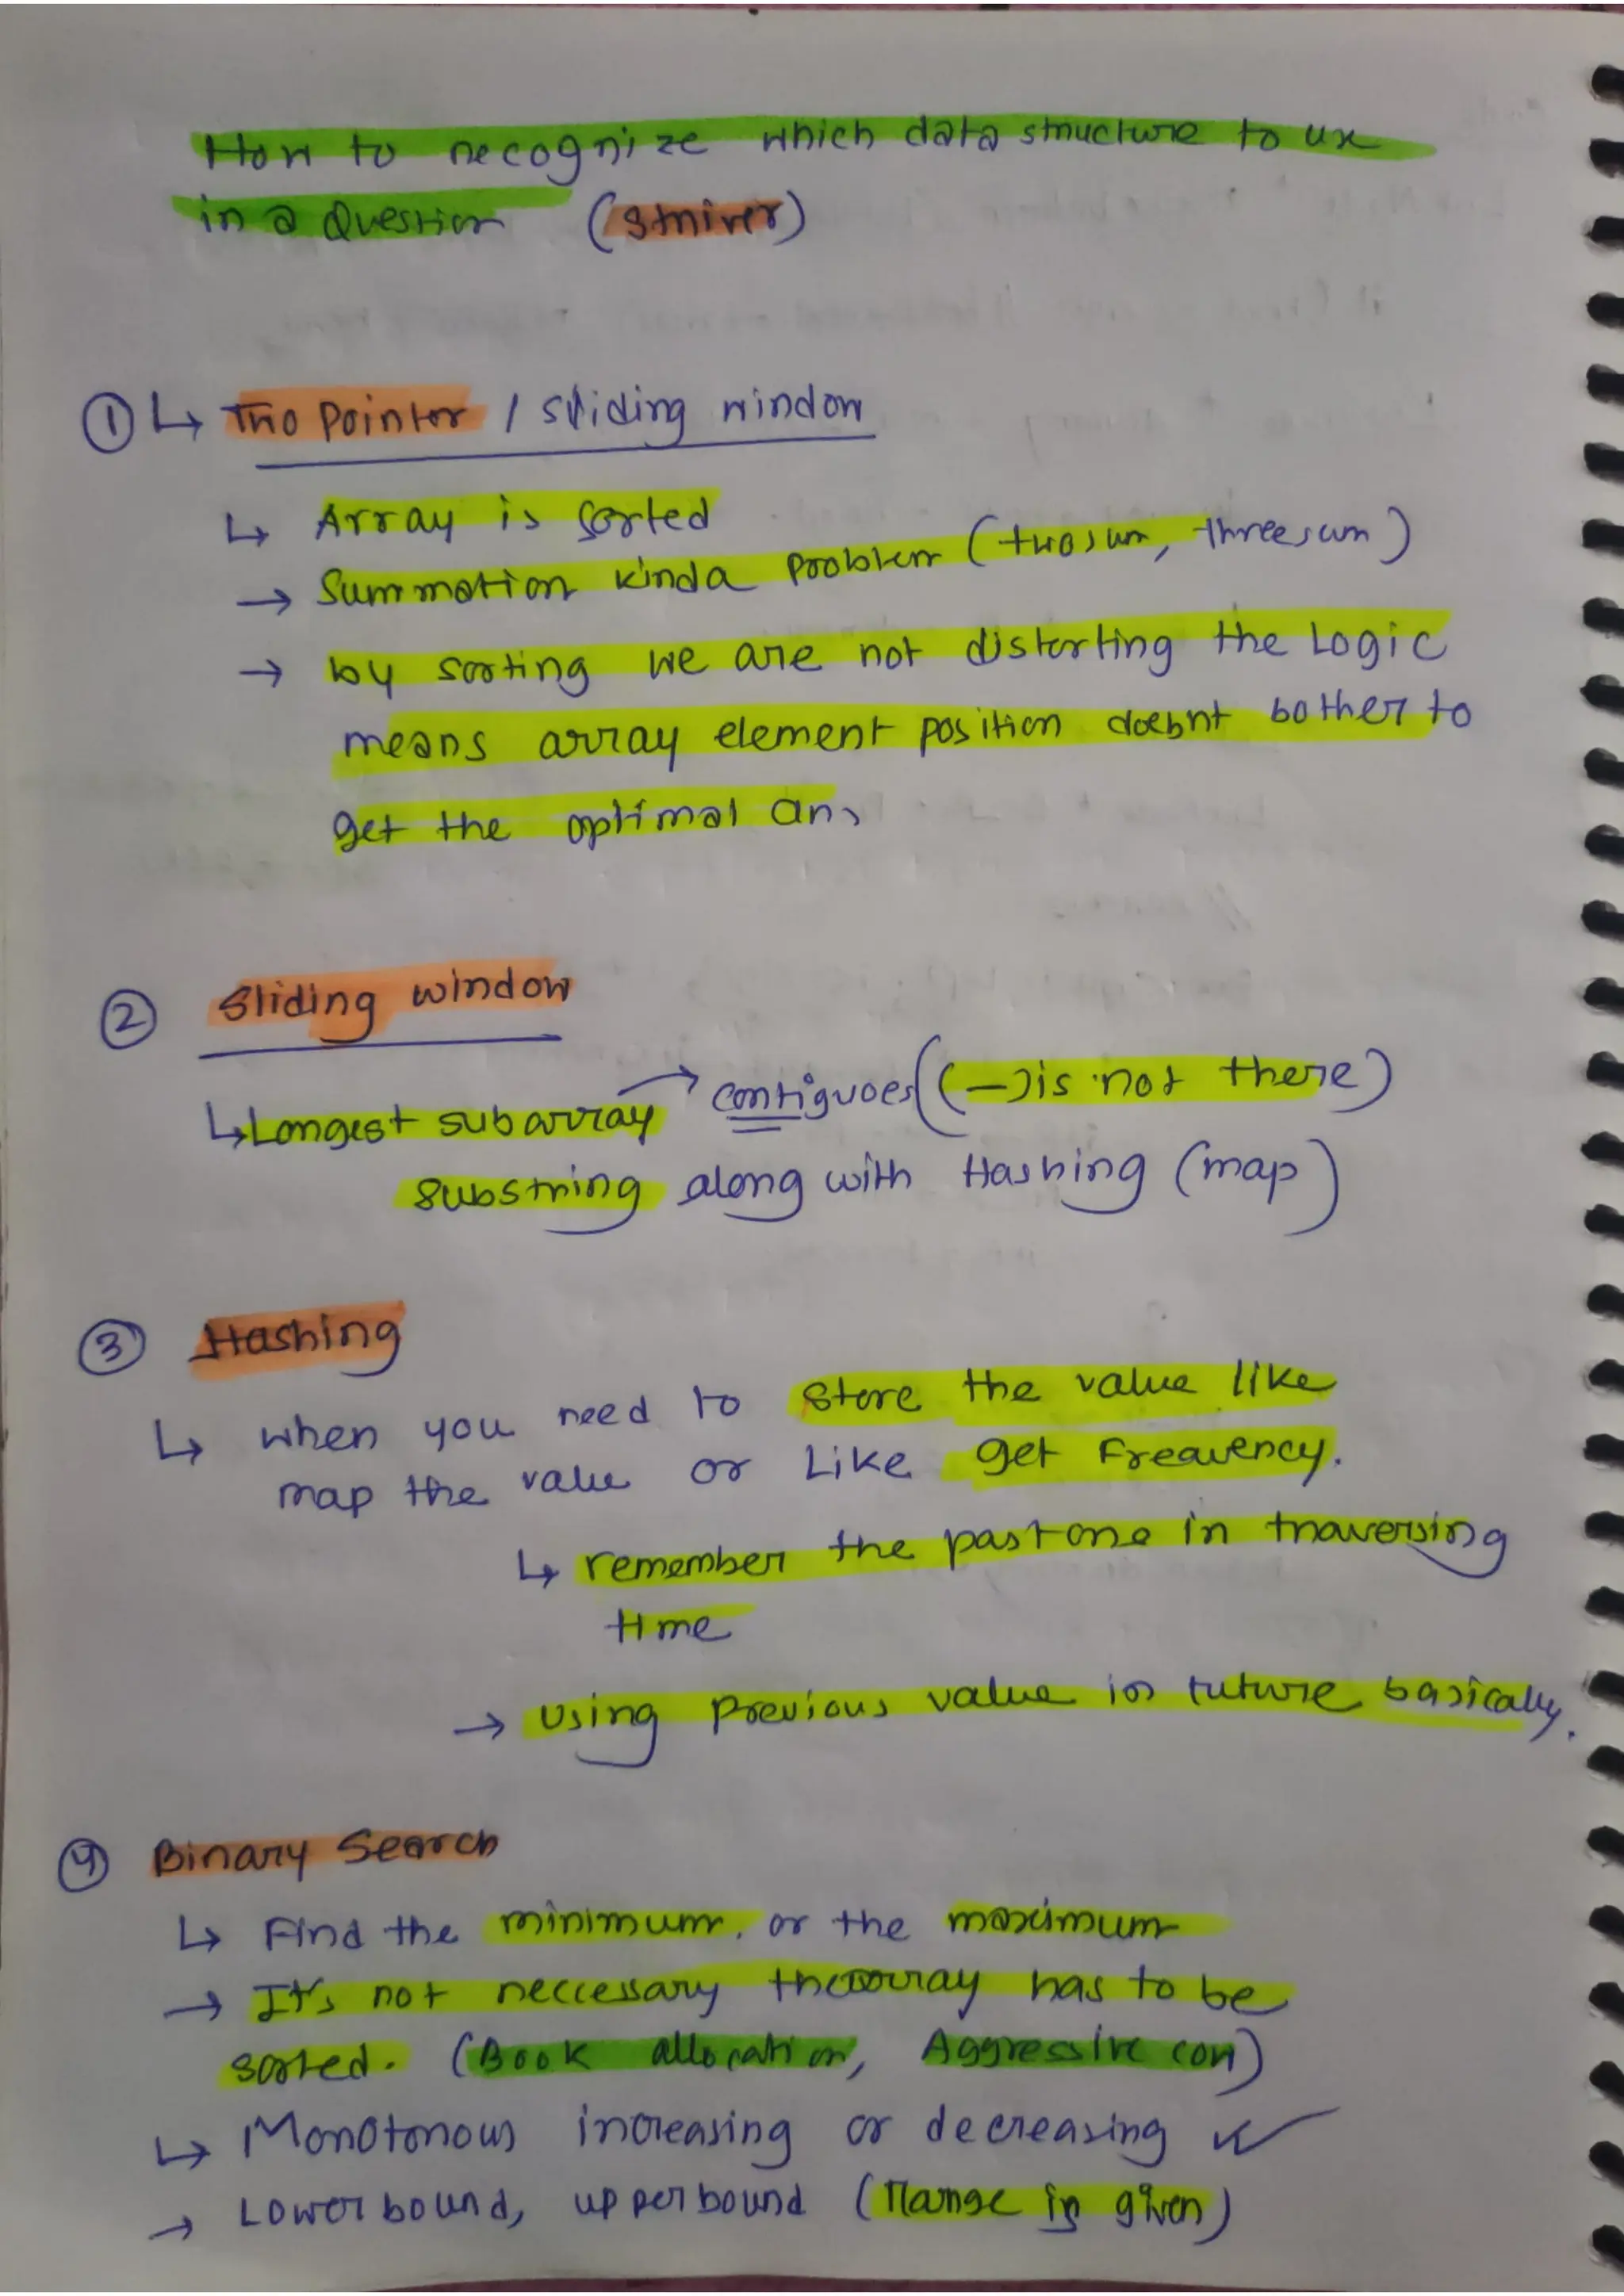 How to recognize which data structure to use
in a Question (Striver)
① ↳ Two Pointer / Sliding window
↳ Array is sorted
→ Summation kinda problem (two sum, three sum)
→ by sorting we are not distorting the Logic
means array element position doesnt bother to
get the optimal ans
② Sliding window
↳ Longest subarray → contiguoes ((–) is not there)
substring along with Hashing (map)
③ Hashing
↳ when you need to store the value like
map the value or Like get Frequency.
↳ remember the past one in traversing
time
→ Using previous value in future basically.
④ Binary Search
↳ Find the minimum, or the maximum
→ It's not neccessary the array has to be
sorted. (Book allocation, Aggressive cow)
↳ Monotonous increasing or decreasing
→ Lower bound, upper bound (Range is given)